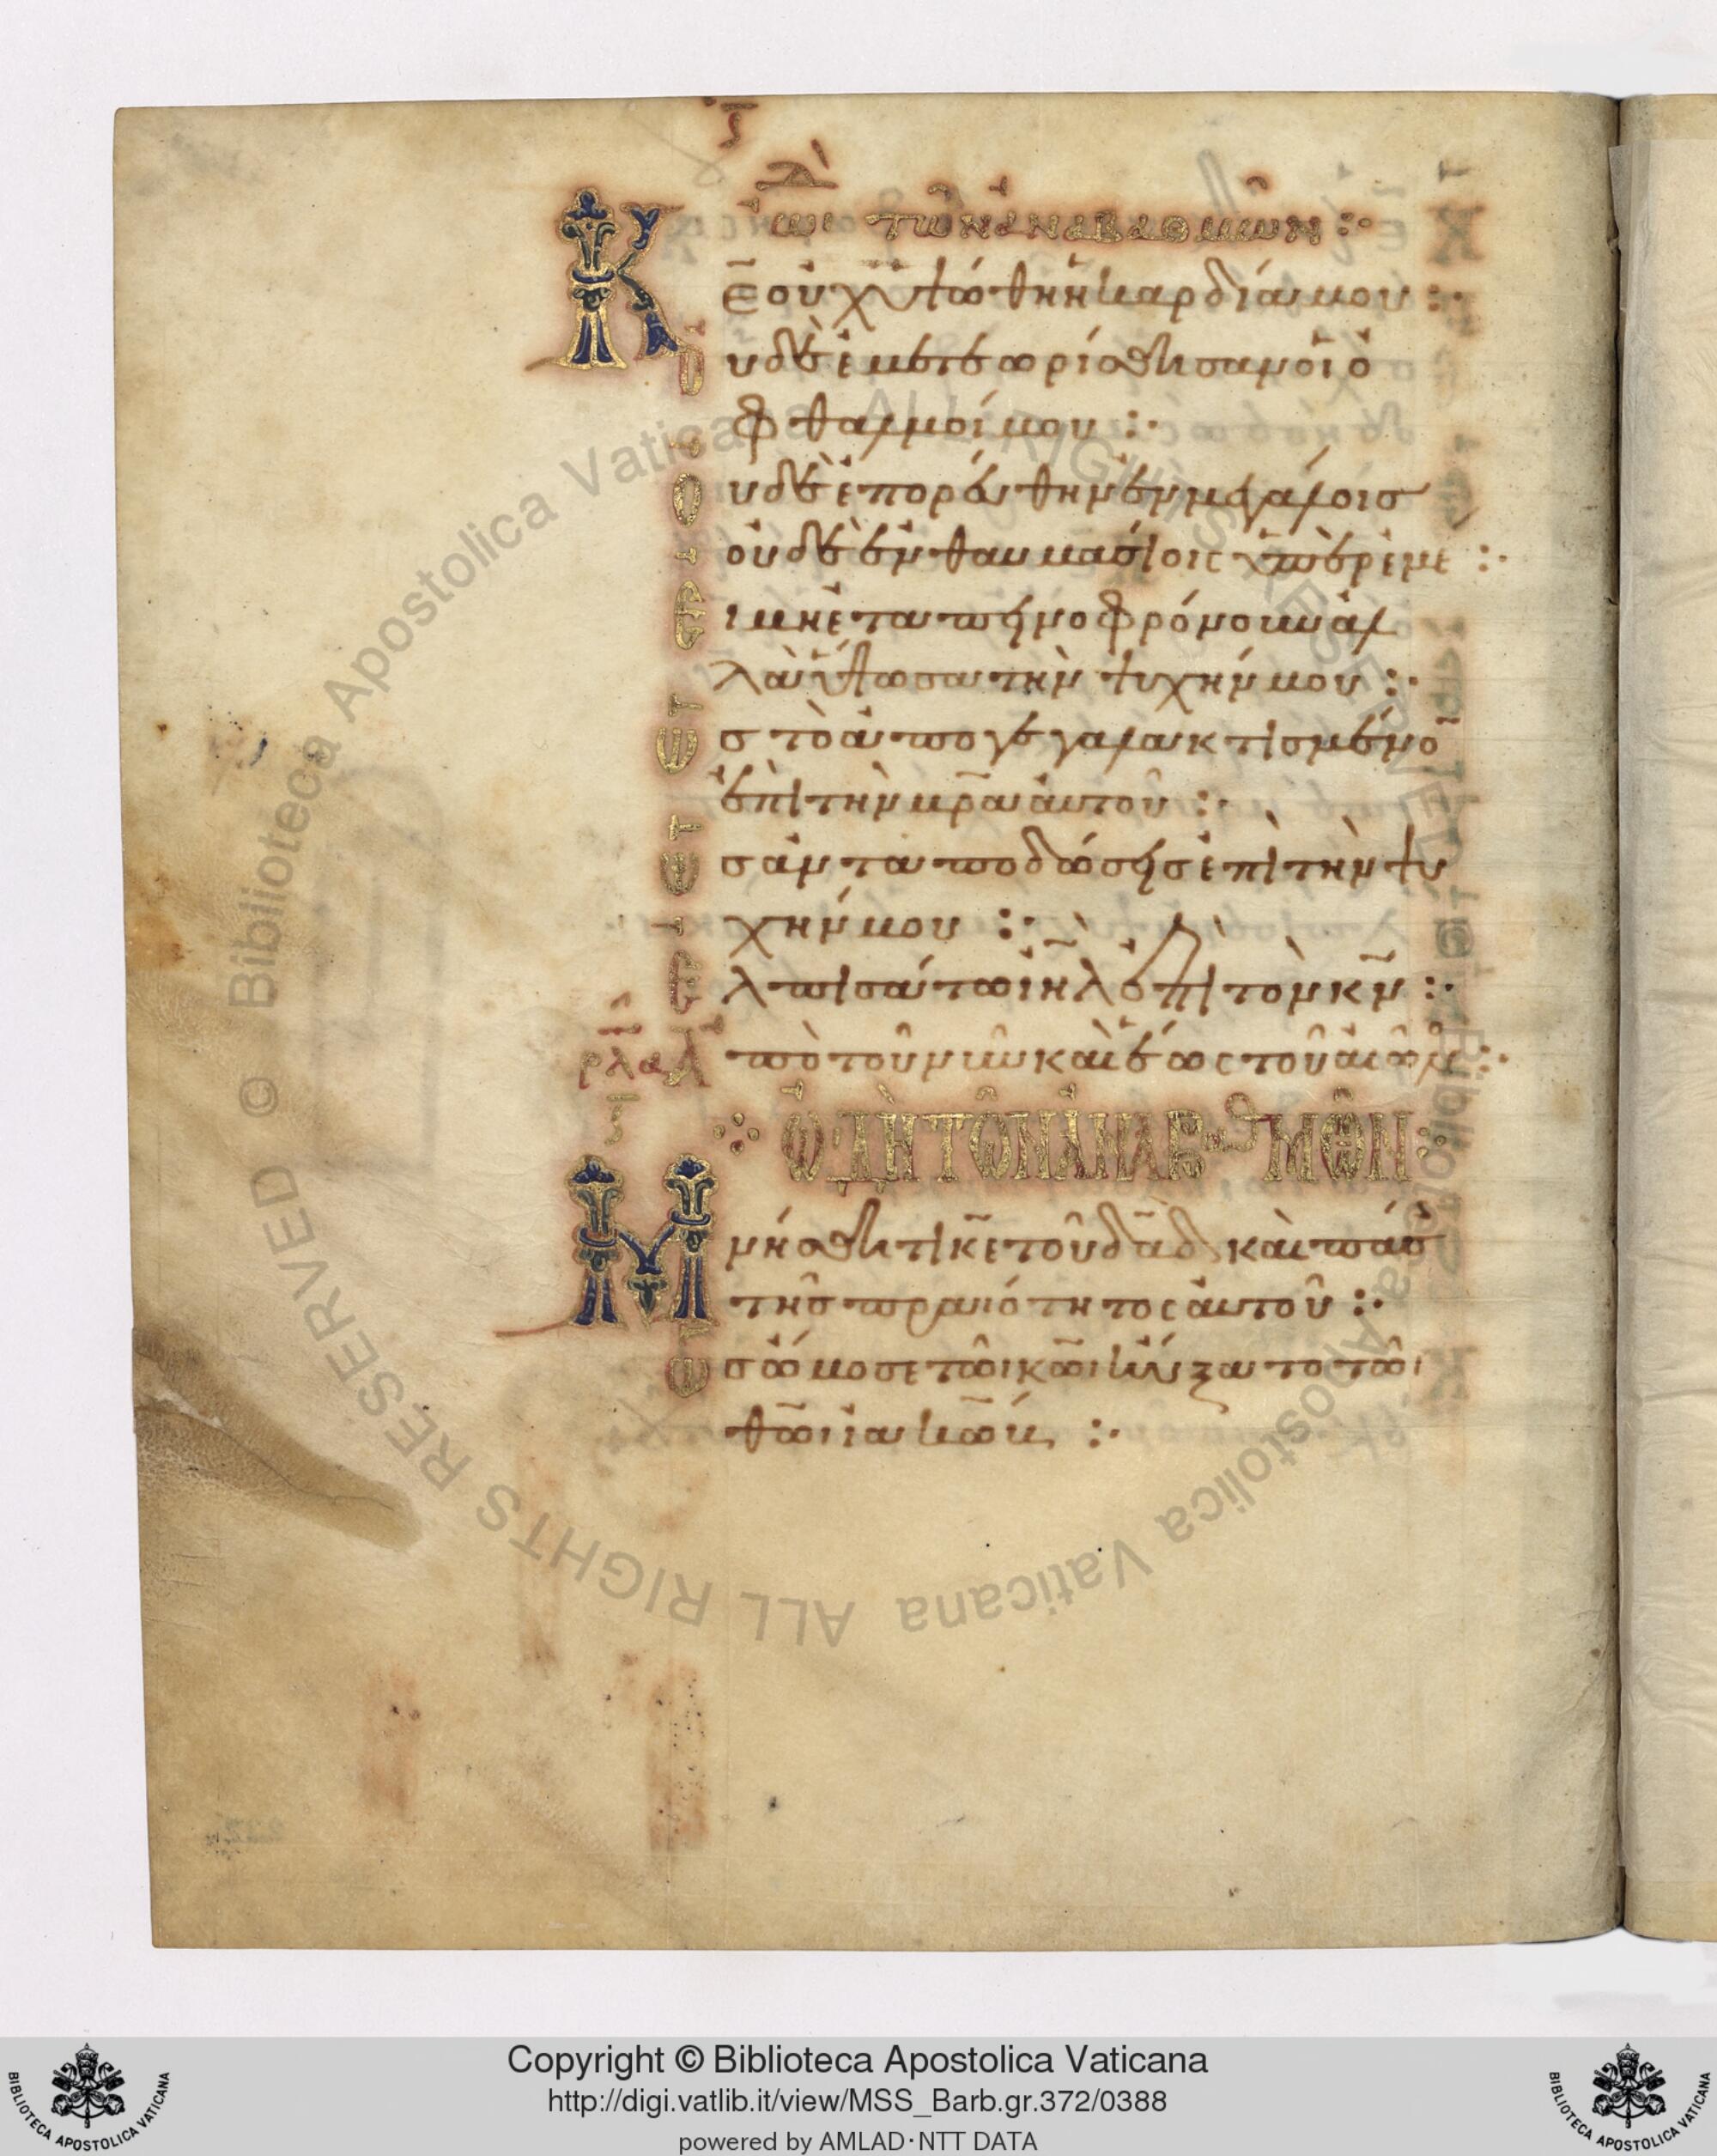 ᾠδὴ τῶν ἀναβαθμῶν :·
Κε̄ οὐχ ὑψώθη ἡ καρδία μου :·
οὐδὲ ἐμετεωρίσθησαν οἱ ὀ
φθαλμοί μου :·
οὐδὲ ἐπορεύθην ἐν μεγάλοις
οὐδὲ ἐν θαυμασίοις ὑπὲρ ἐμε :·
εἰ μὴ ἐταπεινοφρόνουν ἀλ
λὰ ὕψωσα τὴν ψυχήν μου :·
ὡς τὸ ἀπογεγαλακτισμένο̄
ἐπὶ τὴν μρ̄α αὐτοῦ :·
ὡς ἀνταποδώσεις ἐπὶ τὴν ψυ
χήν μου :·
ἐλπισάτω ιη̄λ ἐπὶ τὸν κν̄ :·
ρλα ἀπὸ τοῦ νῦν καὶ ἕως τοῦ αἰῶν :·
ᾠδὴ τῶν ἀναβαθμῶν :·
Μνήσθητι κε̄ τοῦ δᾱδ καὶ πάσ
τῆς πραότητος αὐτοῦ :·
ὡς ὤμοσε τῶι κω̄ι ηὔξατο τῶι
θω̄ι ἰακώβ :·
Copyright © Biblioteca Apostolica Vaticana
http://digi.vatlib.it/view/MSS_Barb.gr.372/0388
powered by AMLAD·NTT DATA
BIBLIOTECA APOSTOLICA VATICANA
BIBLIOTECA APOSTOLICA VATICANA
© Biblioteca Apostolica Vaticana ALL RIGHTS RESERVED
© Biblioteca Apostolica Vaticana ALL RIGHTS RESERVED